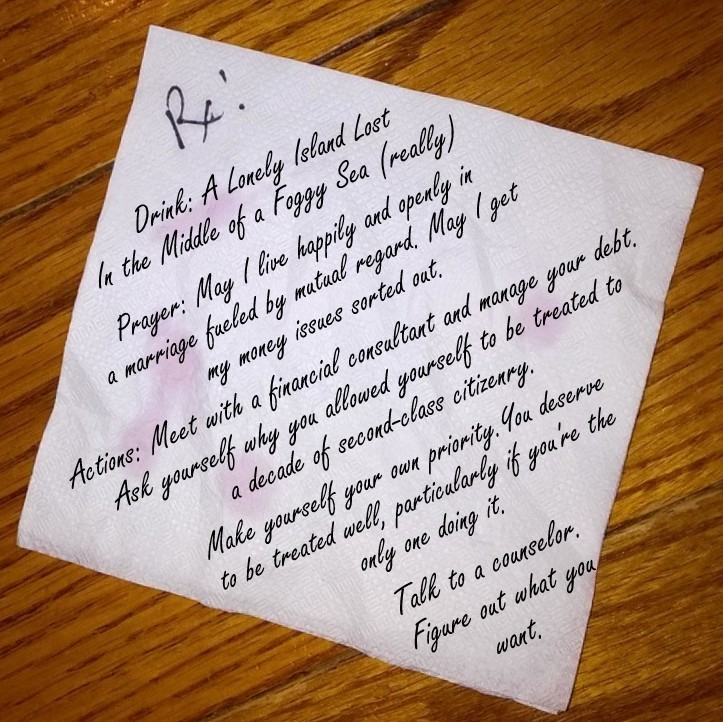 Rx:
Drink: A Lonely Island Lost
In the Middle of a Foggy Sea (really)
Prayer: May I live happily and openly in
a marriage fueled by mutual regard. May I get
my money issues sorted out.
Actions: Meet with a financial consultant and manage your debt.
Ask yourself why you allowed yourself to be treated to
a decade of second-class citizenry.
Make yourself your own priority. You deserve
to be treated well, particularly if you're the
only one doing it.
Talk to a counselor.
Figure out what you
want.